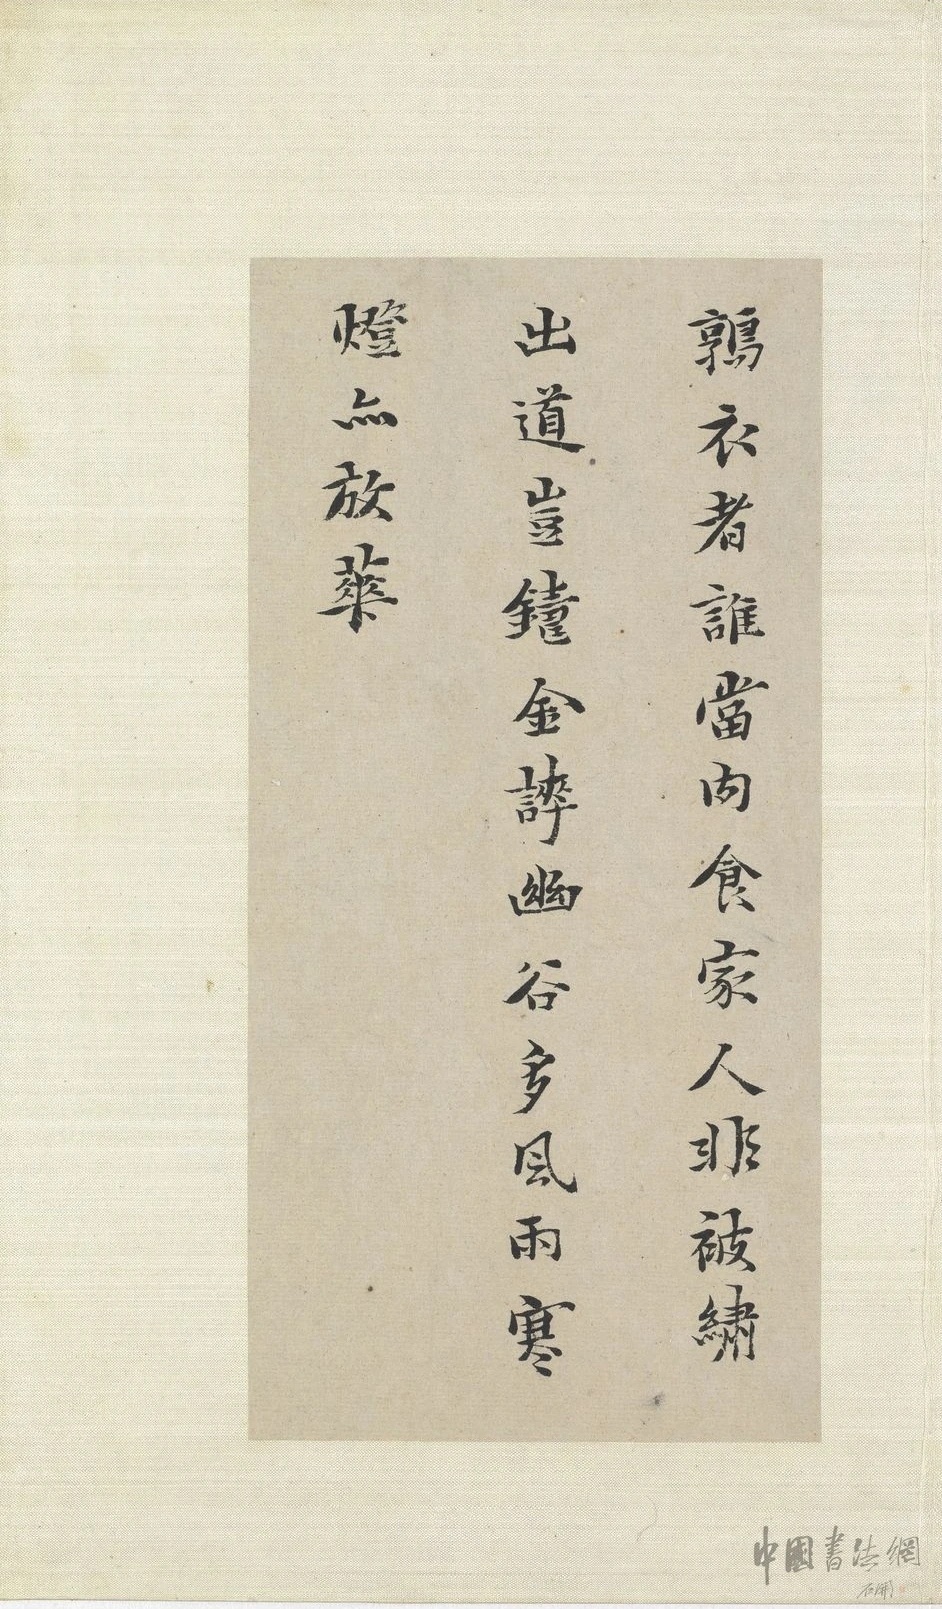 鶉衣者誰當肉食家人非被繡
出道豈金幽谷多風雨寒
燈亦放華
中國書法網
石開